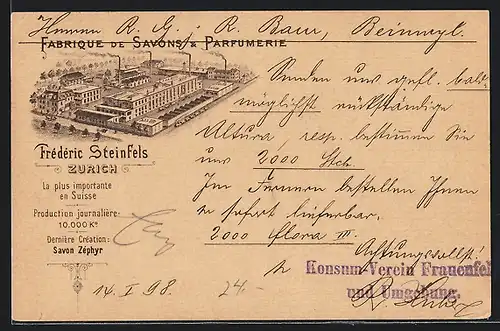 Herren R. G. & R. Baur, Beinwyl.
FABRIQUE DE SAVONS & PARFUMERIE
Frédéric Steinfels
ZURICH
La plus importante
en Suisse
Production journalière:
10,000 Ko
Dernière Création:
Savon Zéphyr
Senden uns gefl. bald-
möglichst rückständige
Altura, resp. bestimmen Sie
uns 2000 Stck.
Im Fernern bestellen Ihnen
z sofort lieferbar.
2000 flora III.
Achtungsvollst!
Konsum-Verein Frauenfel
und Umgebung.
14. I 98.
24.-